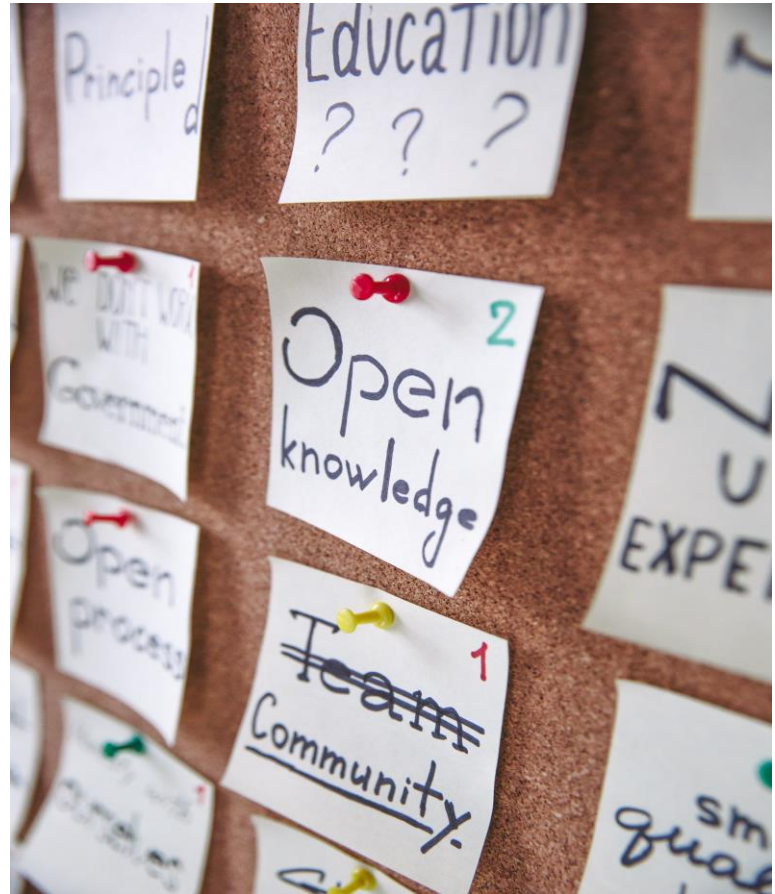 Principle
Education
? ? ?
WE DON'T WORK
WITH
Government
2
Open
knowledge
Open
process
1
Team
Community
EXPE
1
ourselves
sm
qua